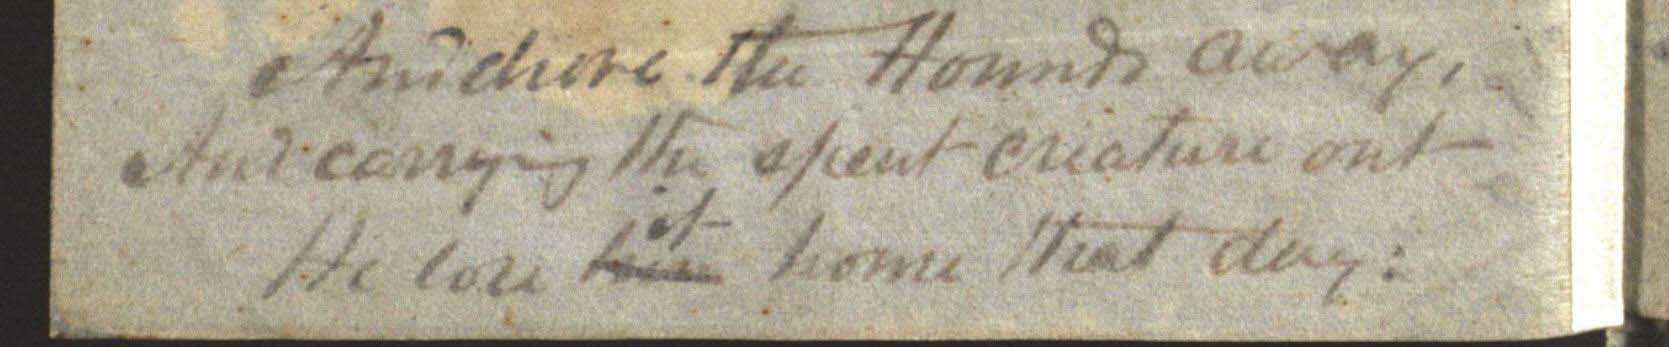 And drove the Hounds away,
And carrying the spent creature out
He bore him it home that day: